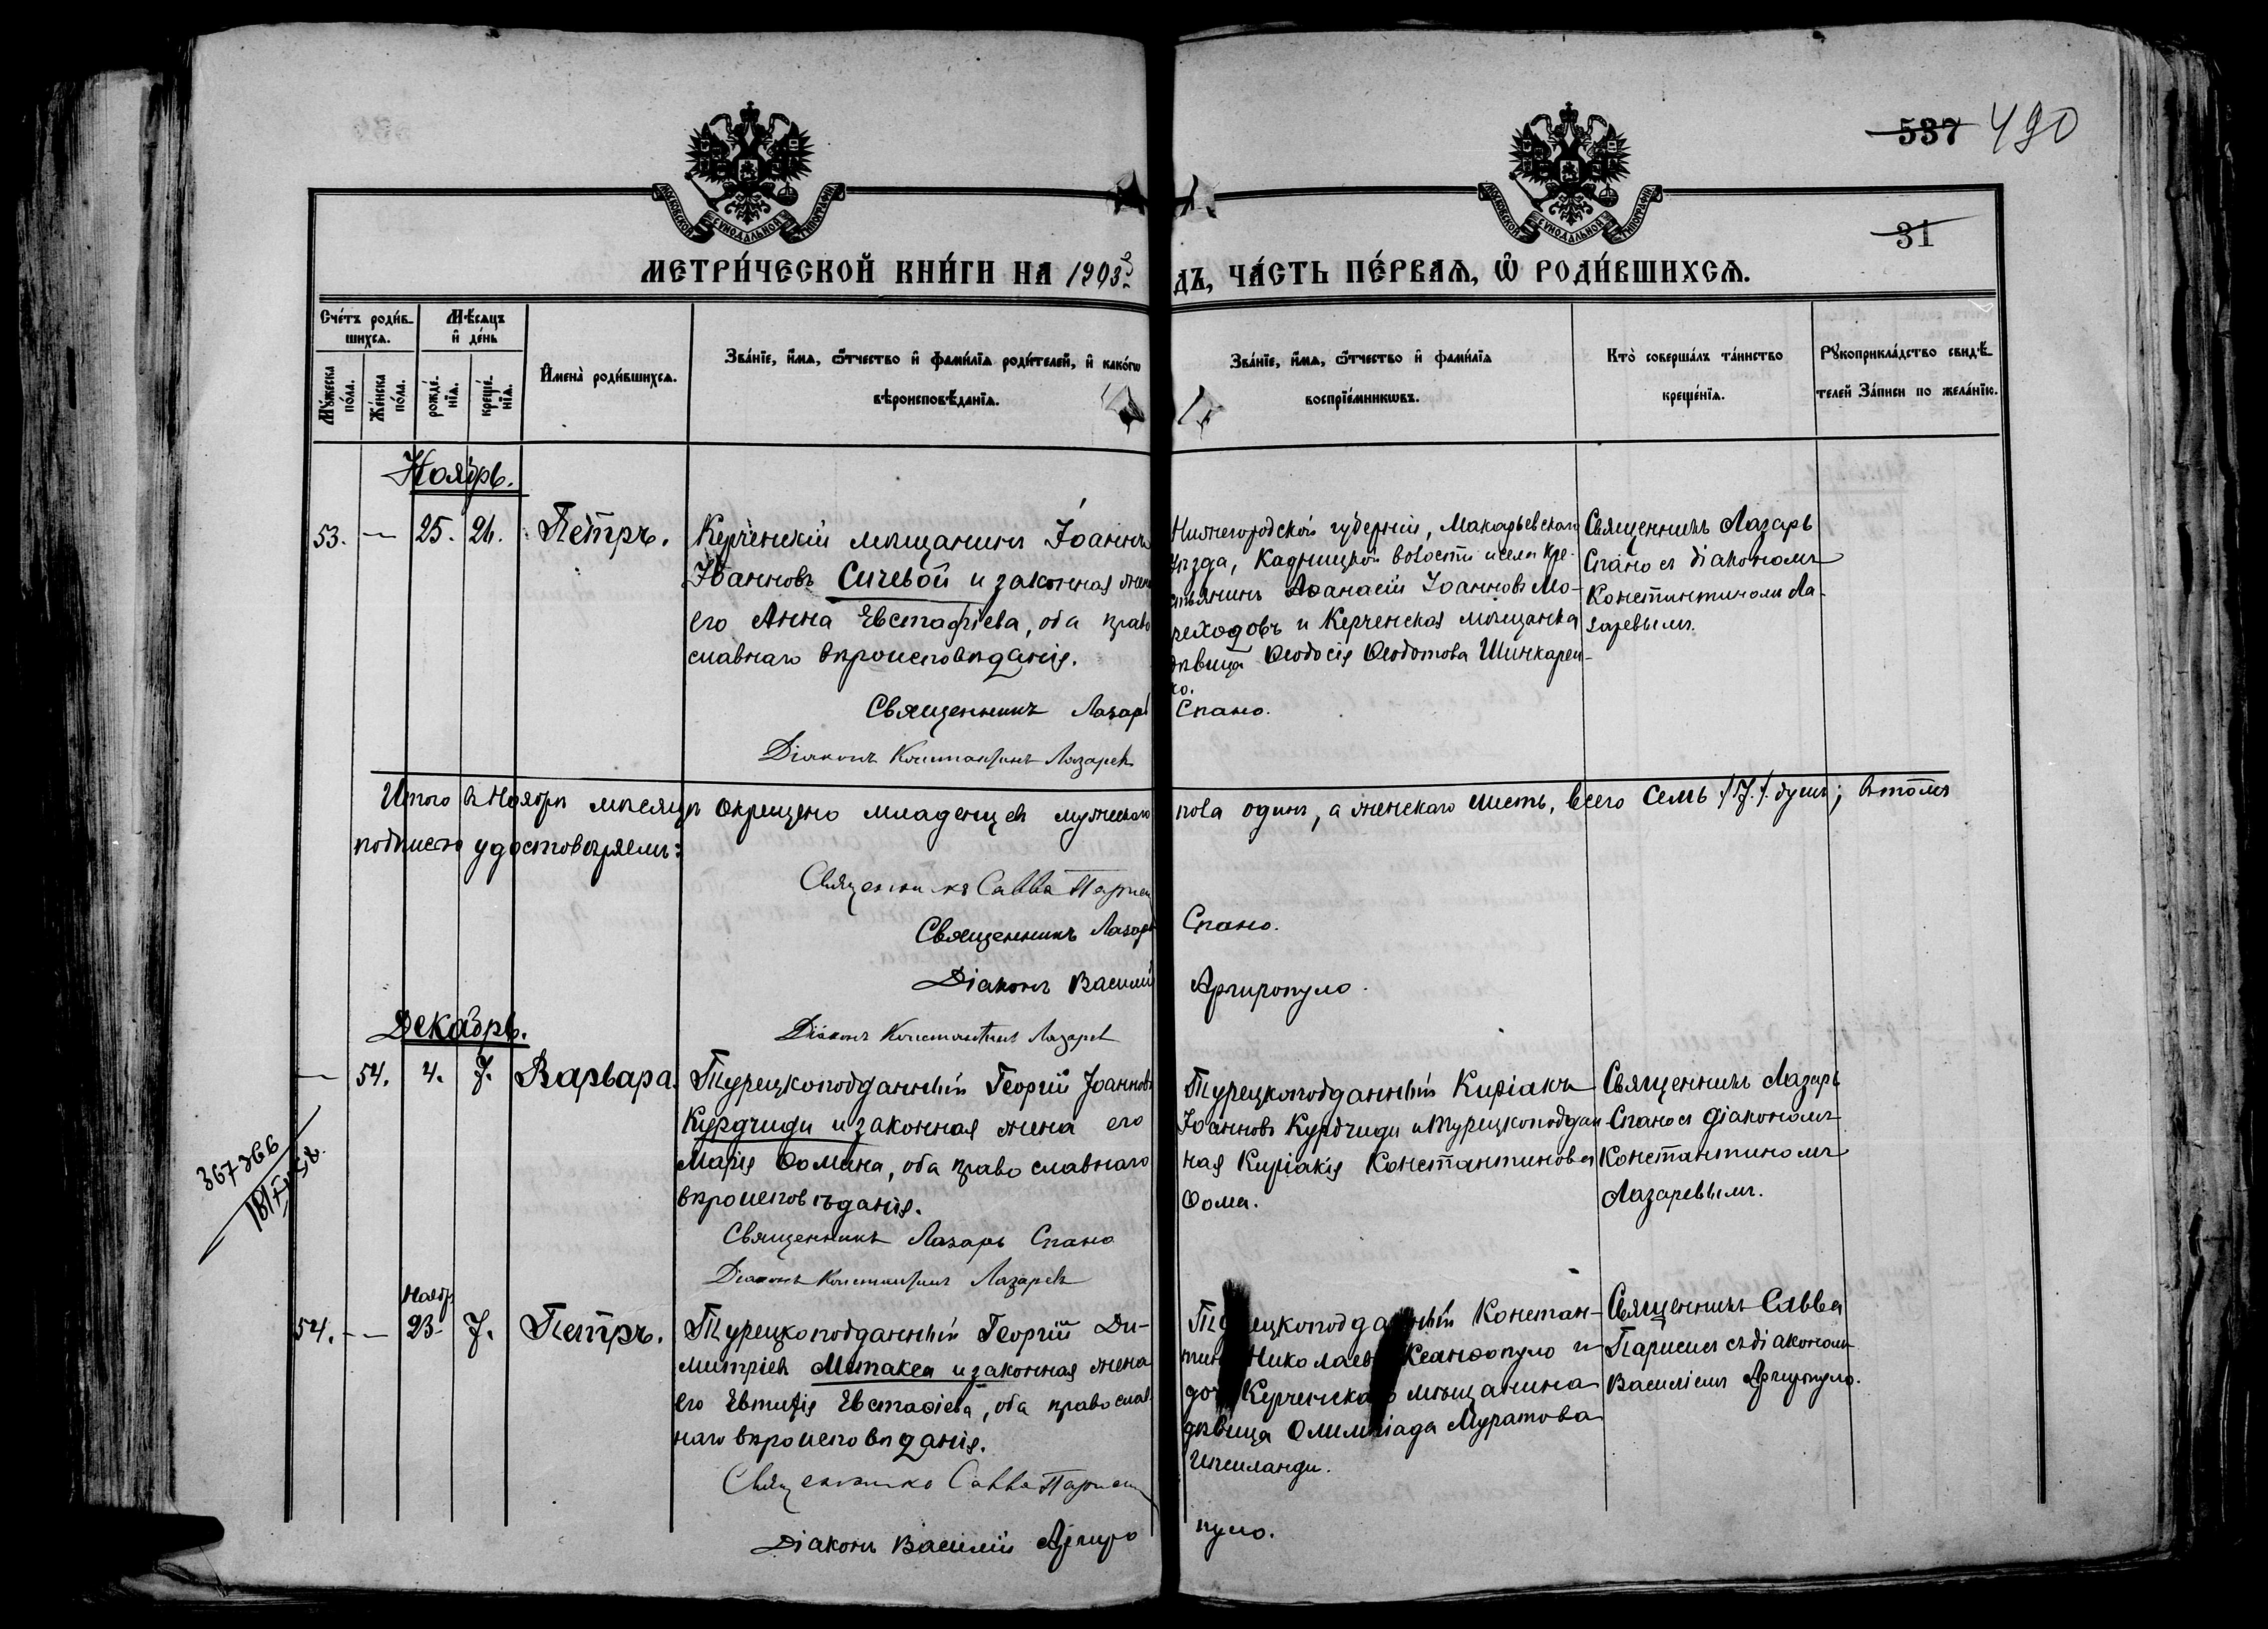 537 490
31
МОСКОВСКОЙ СѴНОДАЛЬНОЙ ТИПОГРАФІИ
МОСКОВСКОЙ СѴНОДАЛЬНОЙ ТИПОГРАФІИ
МЕТРИ́ЧЕСКОЙ КНИ́ГИ НА 1903 г.
ДЪ, ЧА́СТЬ ПЕ́РВАѦ, Ѽ РОДИ́ВШИХСѦ.
Сче́тъ роди́в-
шихсѧ.
Мѣ́сѧцъ
и҆ де́нь
Му́жеска
по́ла.
Же́нска
по́ла.
рожде́-
нїѧ.
креще́-
нїѧ.
И҆мена̀ роди́вшихсѧ.
Зва́нїе, и҆́мѧ, ѻ҆́тчество и҆ фами́лїѧ роди́телей, и҆ како́гѡ
вѣроисповѣ́данїѧ.
Зва́нїе, и҆́мѧ, ѻ҆́тчество и҆ фами́лїѧ
воспрїе́мникѡвъ.
Кто̀ соверша́лъ та́инство
креще́нїѧ.
Рꙋкоприкла́дство свидѣ́-
телей За́писи по жела́нїю.
Ноябрь.
53. — 25. 26. Петръ.
Керченскій мѣщанинъ Іоаннъ
Іоанновъ Сичевой и законная жена
его Анна Евстафіева, оба право
славнаго вѣроисповѣданія.
Священникъ Лазарь Спано.
Діаконъ Константинъ Лазаревъ
Нижегородской губерніи, Макарьевскаго
уѣзда, Кадницкой волости и села кре-
стьянинъ Аѳанасій Іоанновъ Мо-
реходовъ и Керченская мѣщанка
дѣвица Ѳеодосія Ѳеодотова Шинкарен-
ко.
Священникъ Лазарь
Спано съ діакономъ
Константиномъ Ла-
заревымъ.
Итого въ Ноябрѣ мѣсяцѣ окрещено младенцевъ мужескаго пола одинъ, а женскаго шесть, всего семь /7./ душъ; въ томъ
подписью удостовѣряемъ:
Священникъ Савва Париси
Священникъ Лазарь Спано.
Діаконъ Василій Аргиропуло.
Діаконъ Константинъ Лазаревъ
Декабрь.
— 54. 4. 7. Варвара.
Турецкоподданный Георгій Іоанновъ
Курдчиди и законная жена его
Марія Ѳомина, оба православнаго
вѣроисповѣданія.
Священникъ Лазарь Спано
Діаконъ Константинъ Лазаревъ
Турецкоподданный Киріакъ
Іоанновъ Курдчиди и турецкоподдан
ная Киріакія Константинова
Ѳома.
Священникъ Лазарь
Спано съ діакономъ
Константиномъ
Лазаревымъ.
367366
54. — — Ноябр. 23. 7. Петръ.
Турецкоподданный Георгій Ди-
митріевъ Метакса и законная жена
его Евтифія Евстаѳіева, оба православ-
наго вѣроисповѣданія.
Священникъ Савва Париси
Діаконъ Василій Аргиро
пуло.
Турецкоподданный Констан-
тинъ Николаевъ Ксанѳопуло и
дочь Керченскаго мѣщанина
дѣвица Олимпіада Муратова
Ипсиланди.
Священникъ Савва
Парисій съ діакономъ
Василіемъ Аргиропуло.